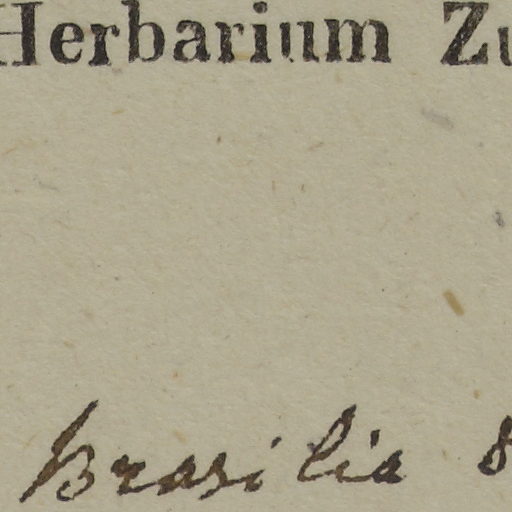 Herbarium Zu
Brasilia